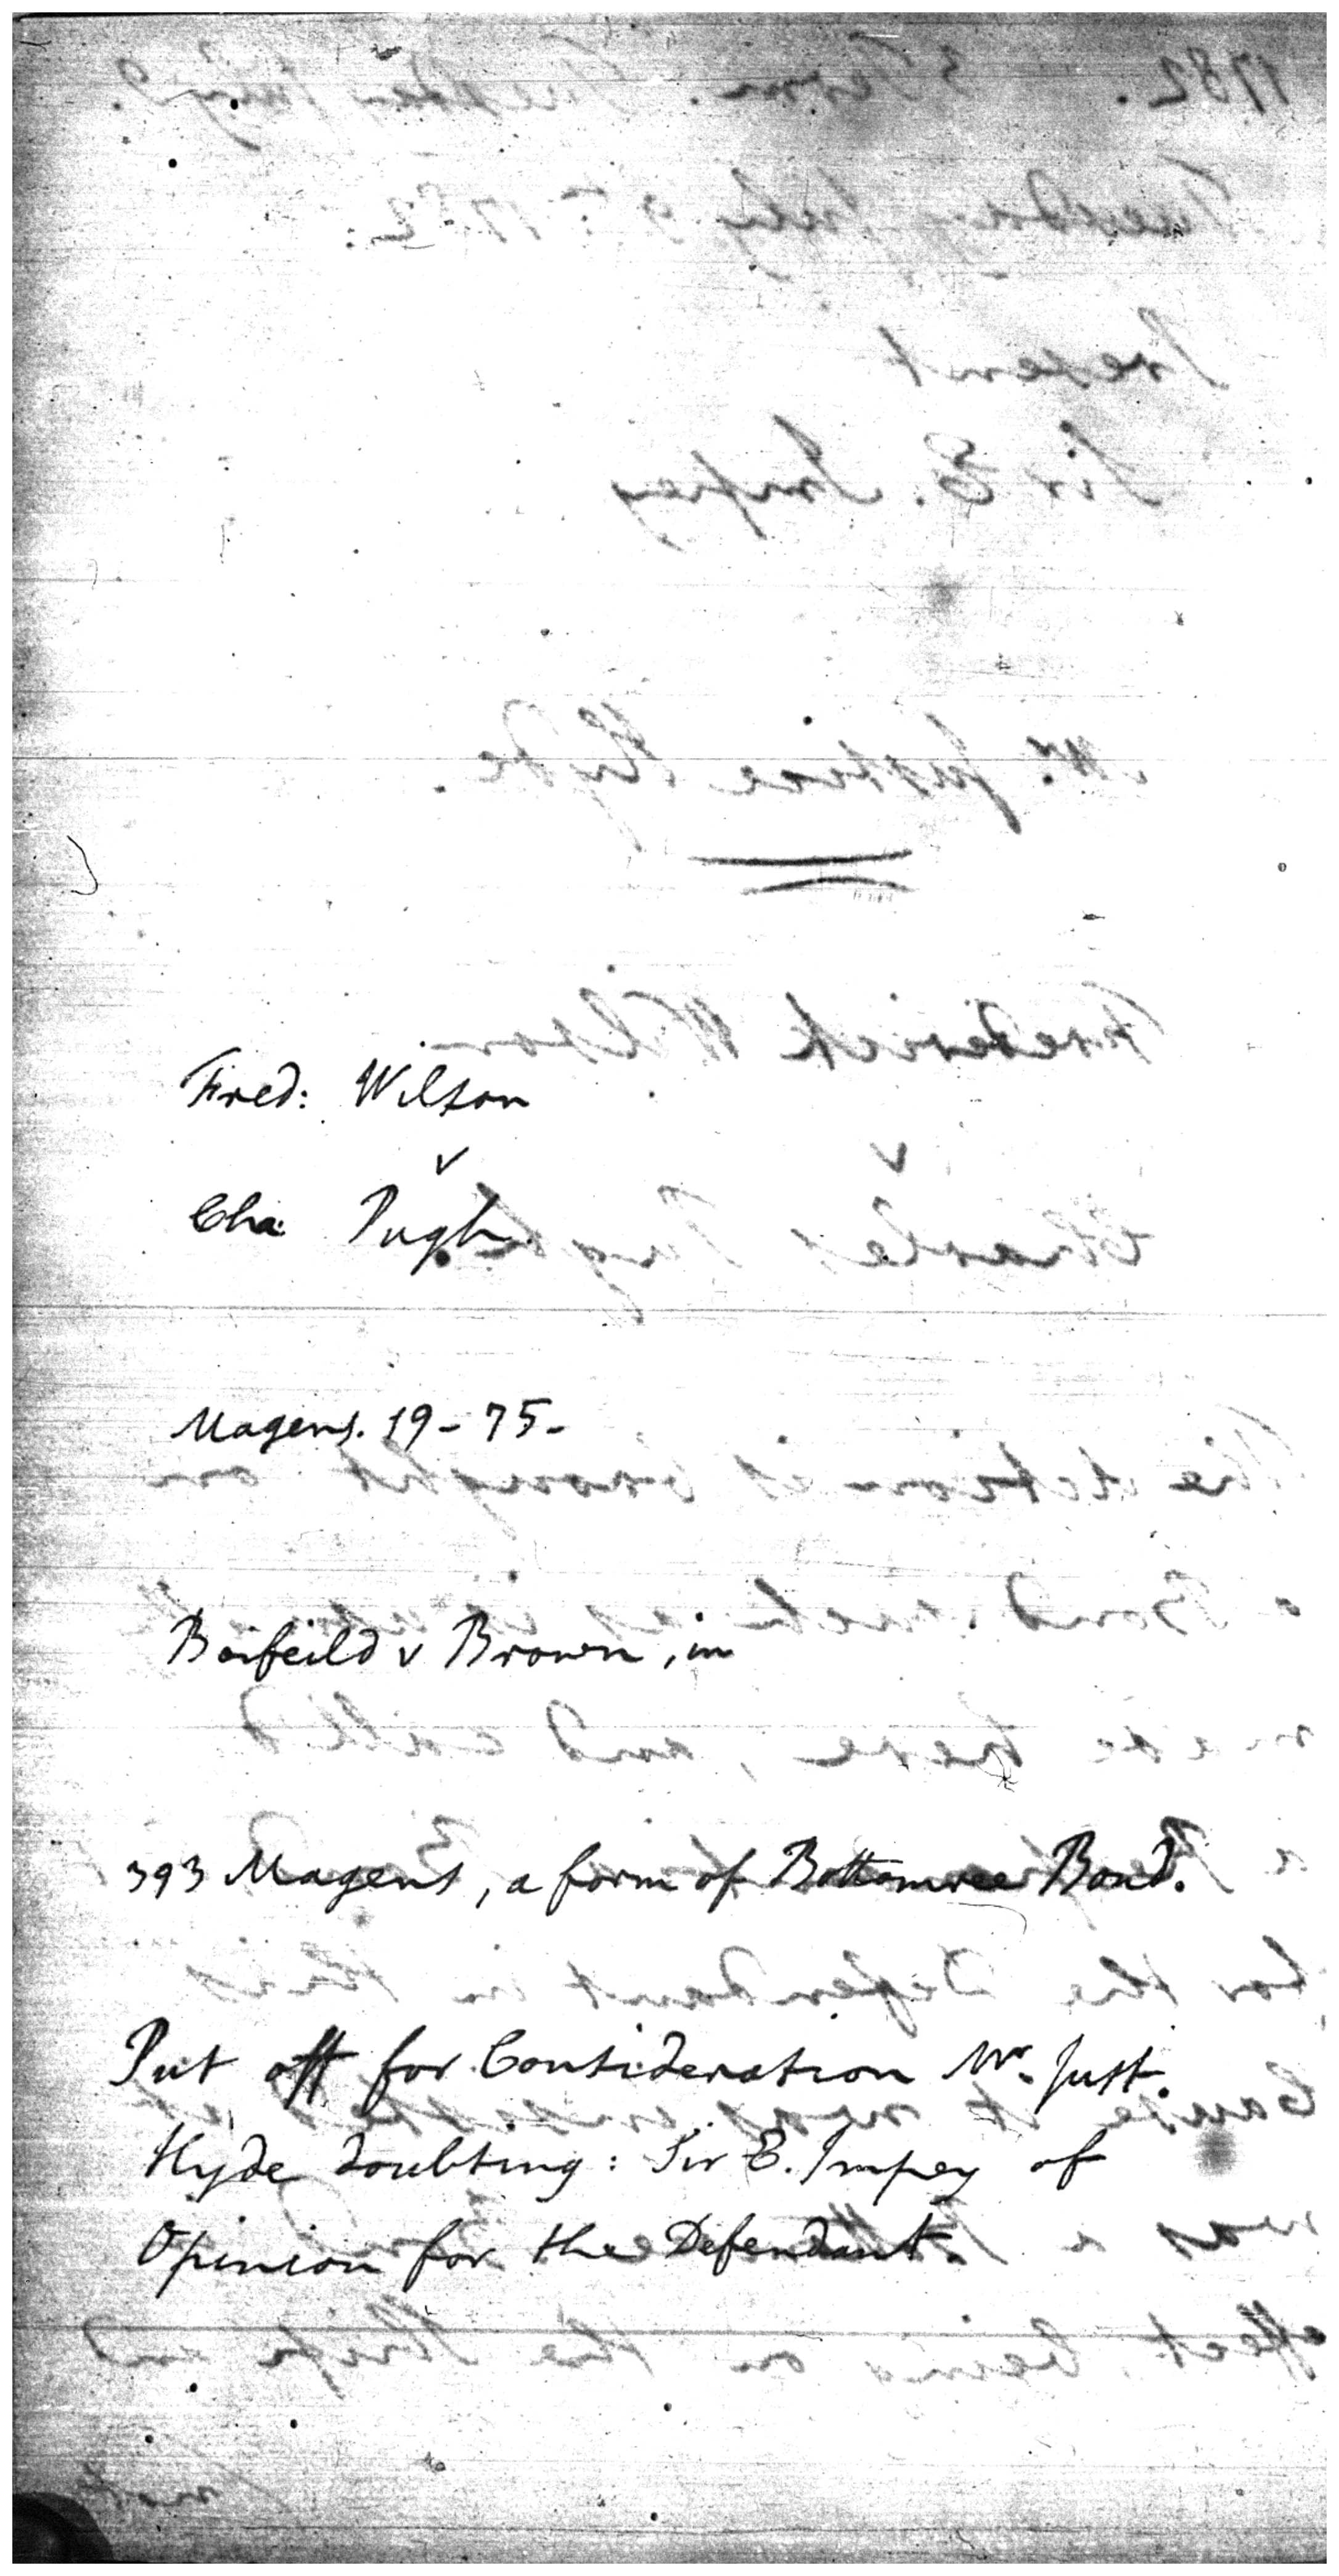 Fred: Wilson
v
Cha: Pugh.
Magens. 19 - 75 -
Barfeild v Brown, in
393 Magens, a form of Bottomree Bond.
Put off for Consideration Mr. Just.
Hyde doubting: Sir E. Impey of
Opinion for the Defendant.